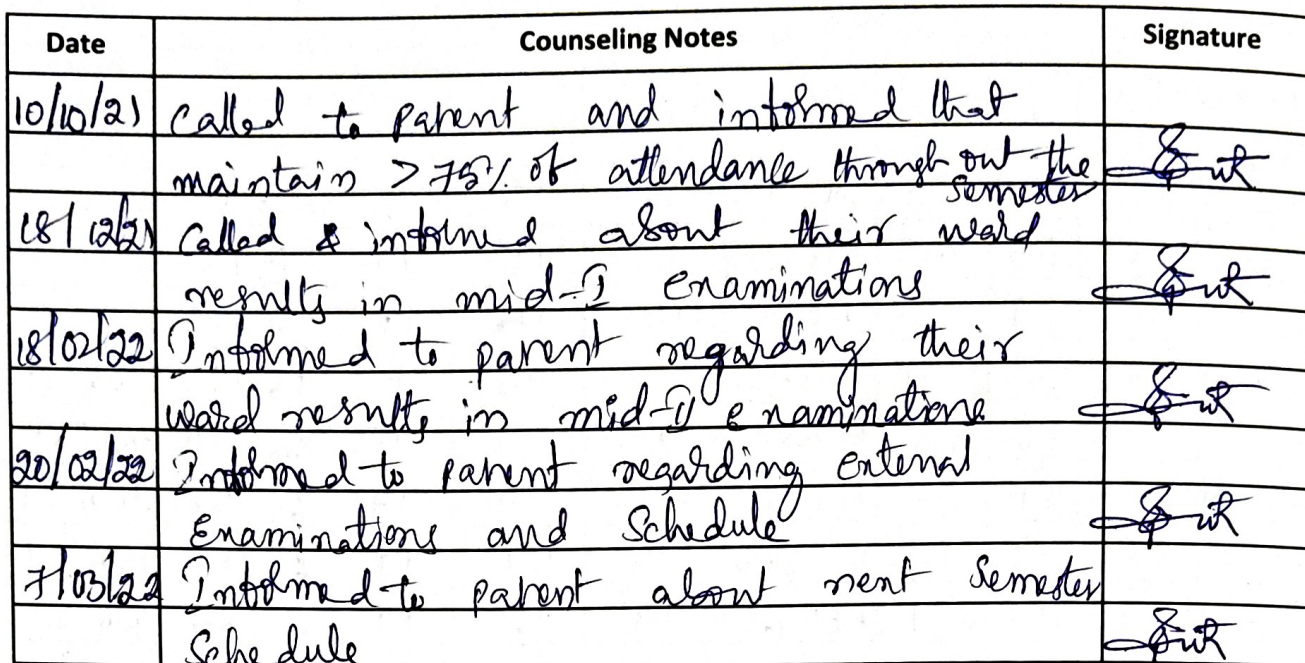 Date Counseling Notes Signature
10/10/21 Called to parent and informed that
maintain >75% of attendance through out the
semester
18/12/21 Called & informed about their ward
results in mid-I examinations
18/02/22 Informed to parent regarding their
ward results in mid-II examinations
20/02/22 Informed to parent regarding external
Examinations and Schedule
7/03/22 Informed to parent about next Semester
Schedule